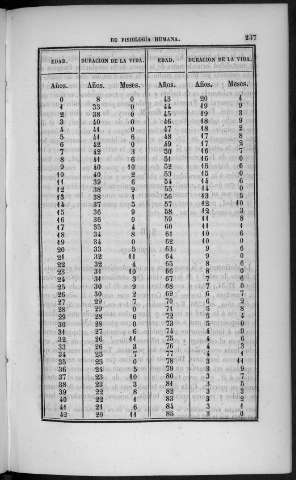 DE FISIOLOGÍA HUMANA. 237
EDAD. DURACION DE LA VIDA. EDAD. DURACION DE LA VIDA.
Años. Años. Meses. Años. Años. Meses.
0 8 0 43 20 4
4 33 0 44 19 9
2 38 0 45 19 3
3 40 0 46 18 9
4 41 0 47 18 2
5 41 6 48 17 8
6 42 0 49 17 2
7 42 3 50 16 7
8 41 6 51 16 0
9 40 10 52 15 6
10 40 2 53 15 0
11 39 6 54 14 6
12 38 9 55 14 0
13 38 1 56 13 5
14 37 5 57 12 10
15 36 9 58 12 3
16 36 0 59 11 8
17 35 4 60 11 1
18 34 8 61 10 6
19 34 0 62 10 0
20 33 5 63 9 6
21 32 11 64 9 0
22 32 4 65 8 6
23 31 10 66 8 0
24 31 3 67 7 6
25 30 9 68 7 0
26 30 2 69 6 7
27 29 7 70 6 2
28 29 0 71 5 8
29 28 6 72 5 4
30 28 0 73 5 0
31 27 6 74 4 9
32 26 11 75 4 6
33 26 3 76 4 3
34 25 7 77 4 1
35 25 0 78 3 11
36 24 5 79 3 9
37 23 10 80 3 7
38 23 3 81 3 5
39 22 8 82 3 3
40 22 1 83 3 2
41 21 6 84 3 1
42 20 11 85 3 0